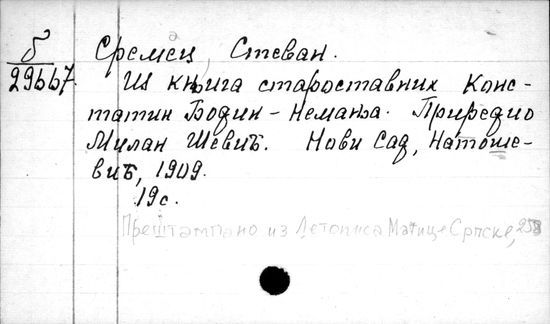 б
29667.
Сремец, Стеван.
Из књига староставних Конс-
татин Бодин - Немања. Приредио
Милан Шевић. Нови Сад, Натоше-
вић, 1909.
19с.
Прештампано из Летописа Матице Српске, 258